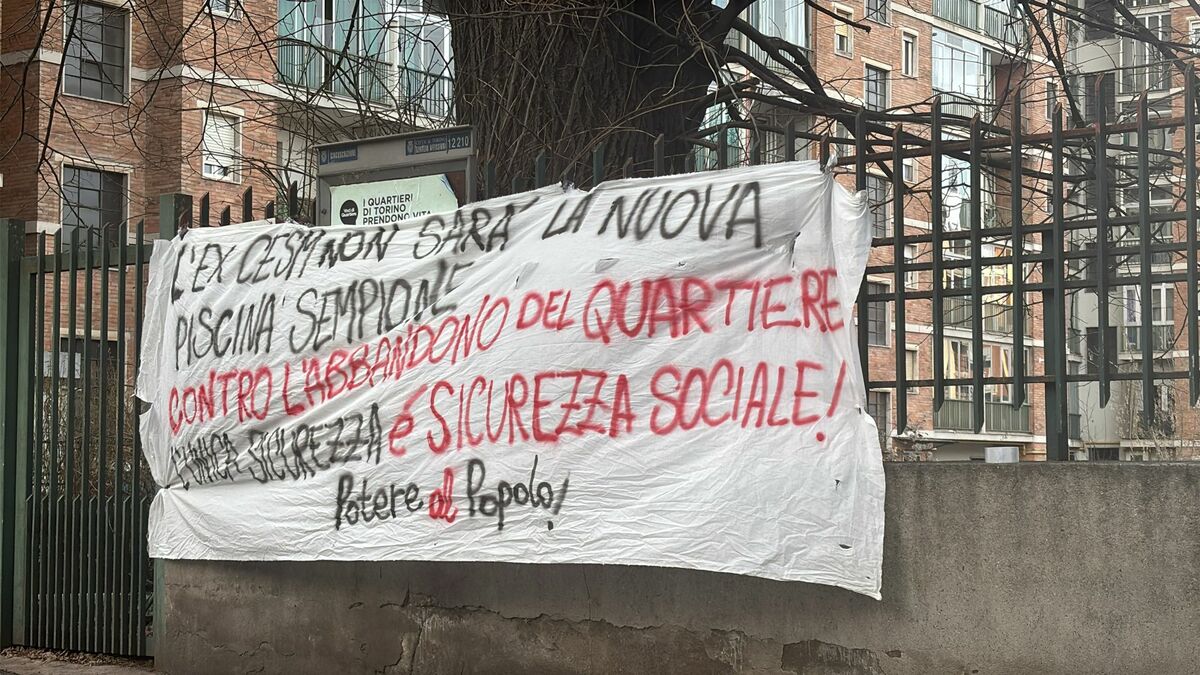 12210
I QUARTIERI
DI TORINO
PRENDONO VITA
L'EX CESM NON SARA' LA NUOVA
PISCINA SEMPIONE
CONTRO L'ABBANDONO DEL QUARTIERE
L'UNICA SICUREZZA É SICUREZZA SOCIALE!
Potere al Popolo!